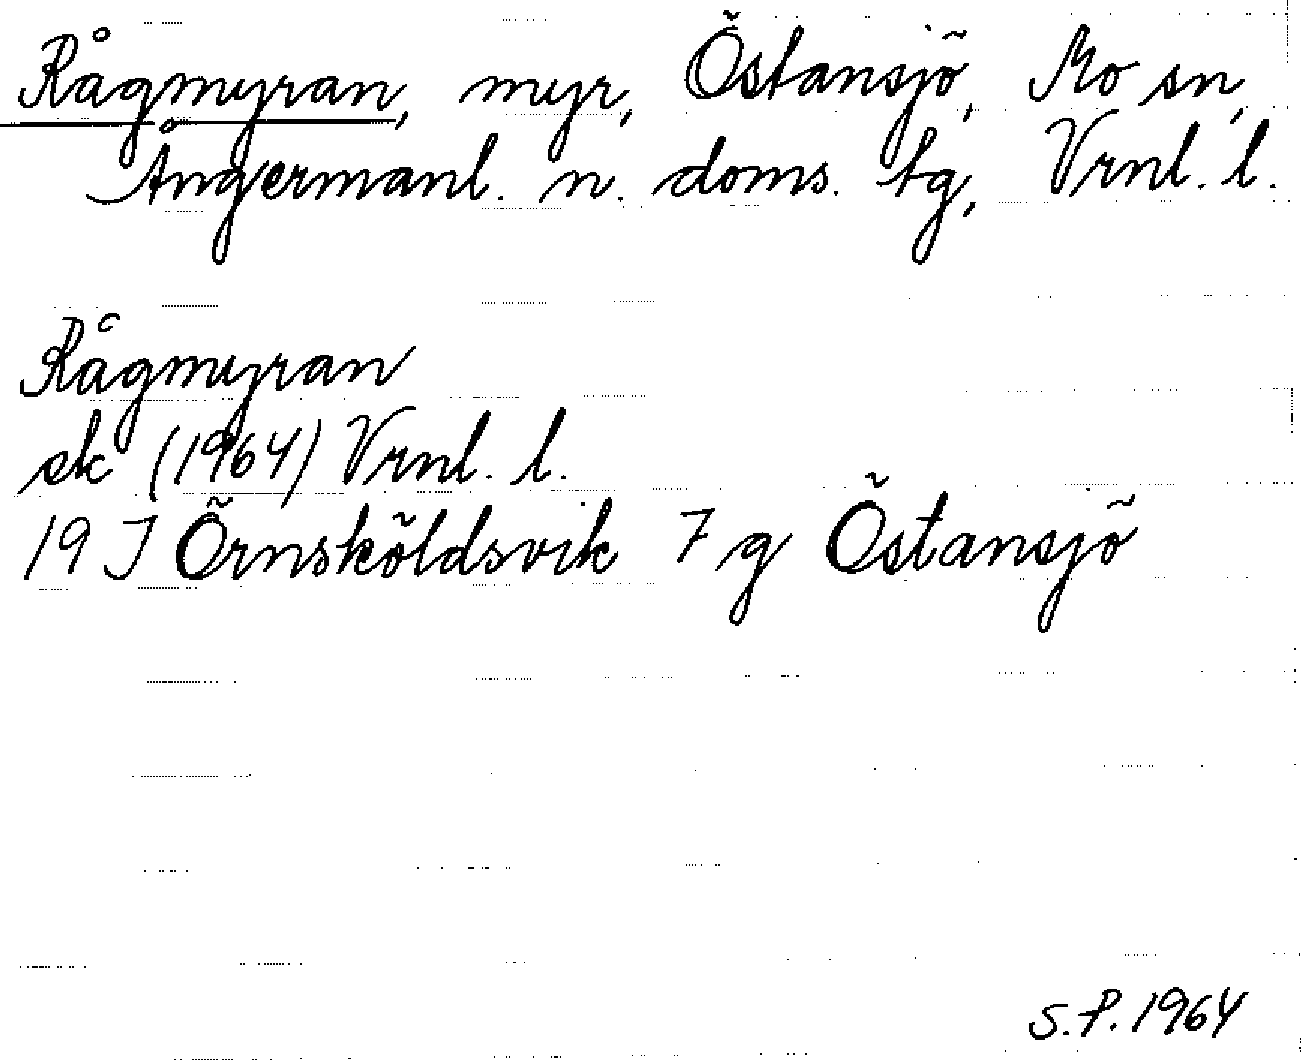 Rågmyran, myr, Östansjö, Mo sn,
Ångermanl. n. doms. tg, Vrnl. l.
Rågmyran
ek (1964) Vrnl. l.
19 J Örnsköldsvik 7 g Östansjö
S.P. 1964